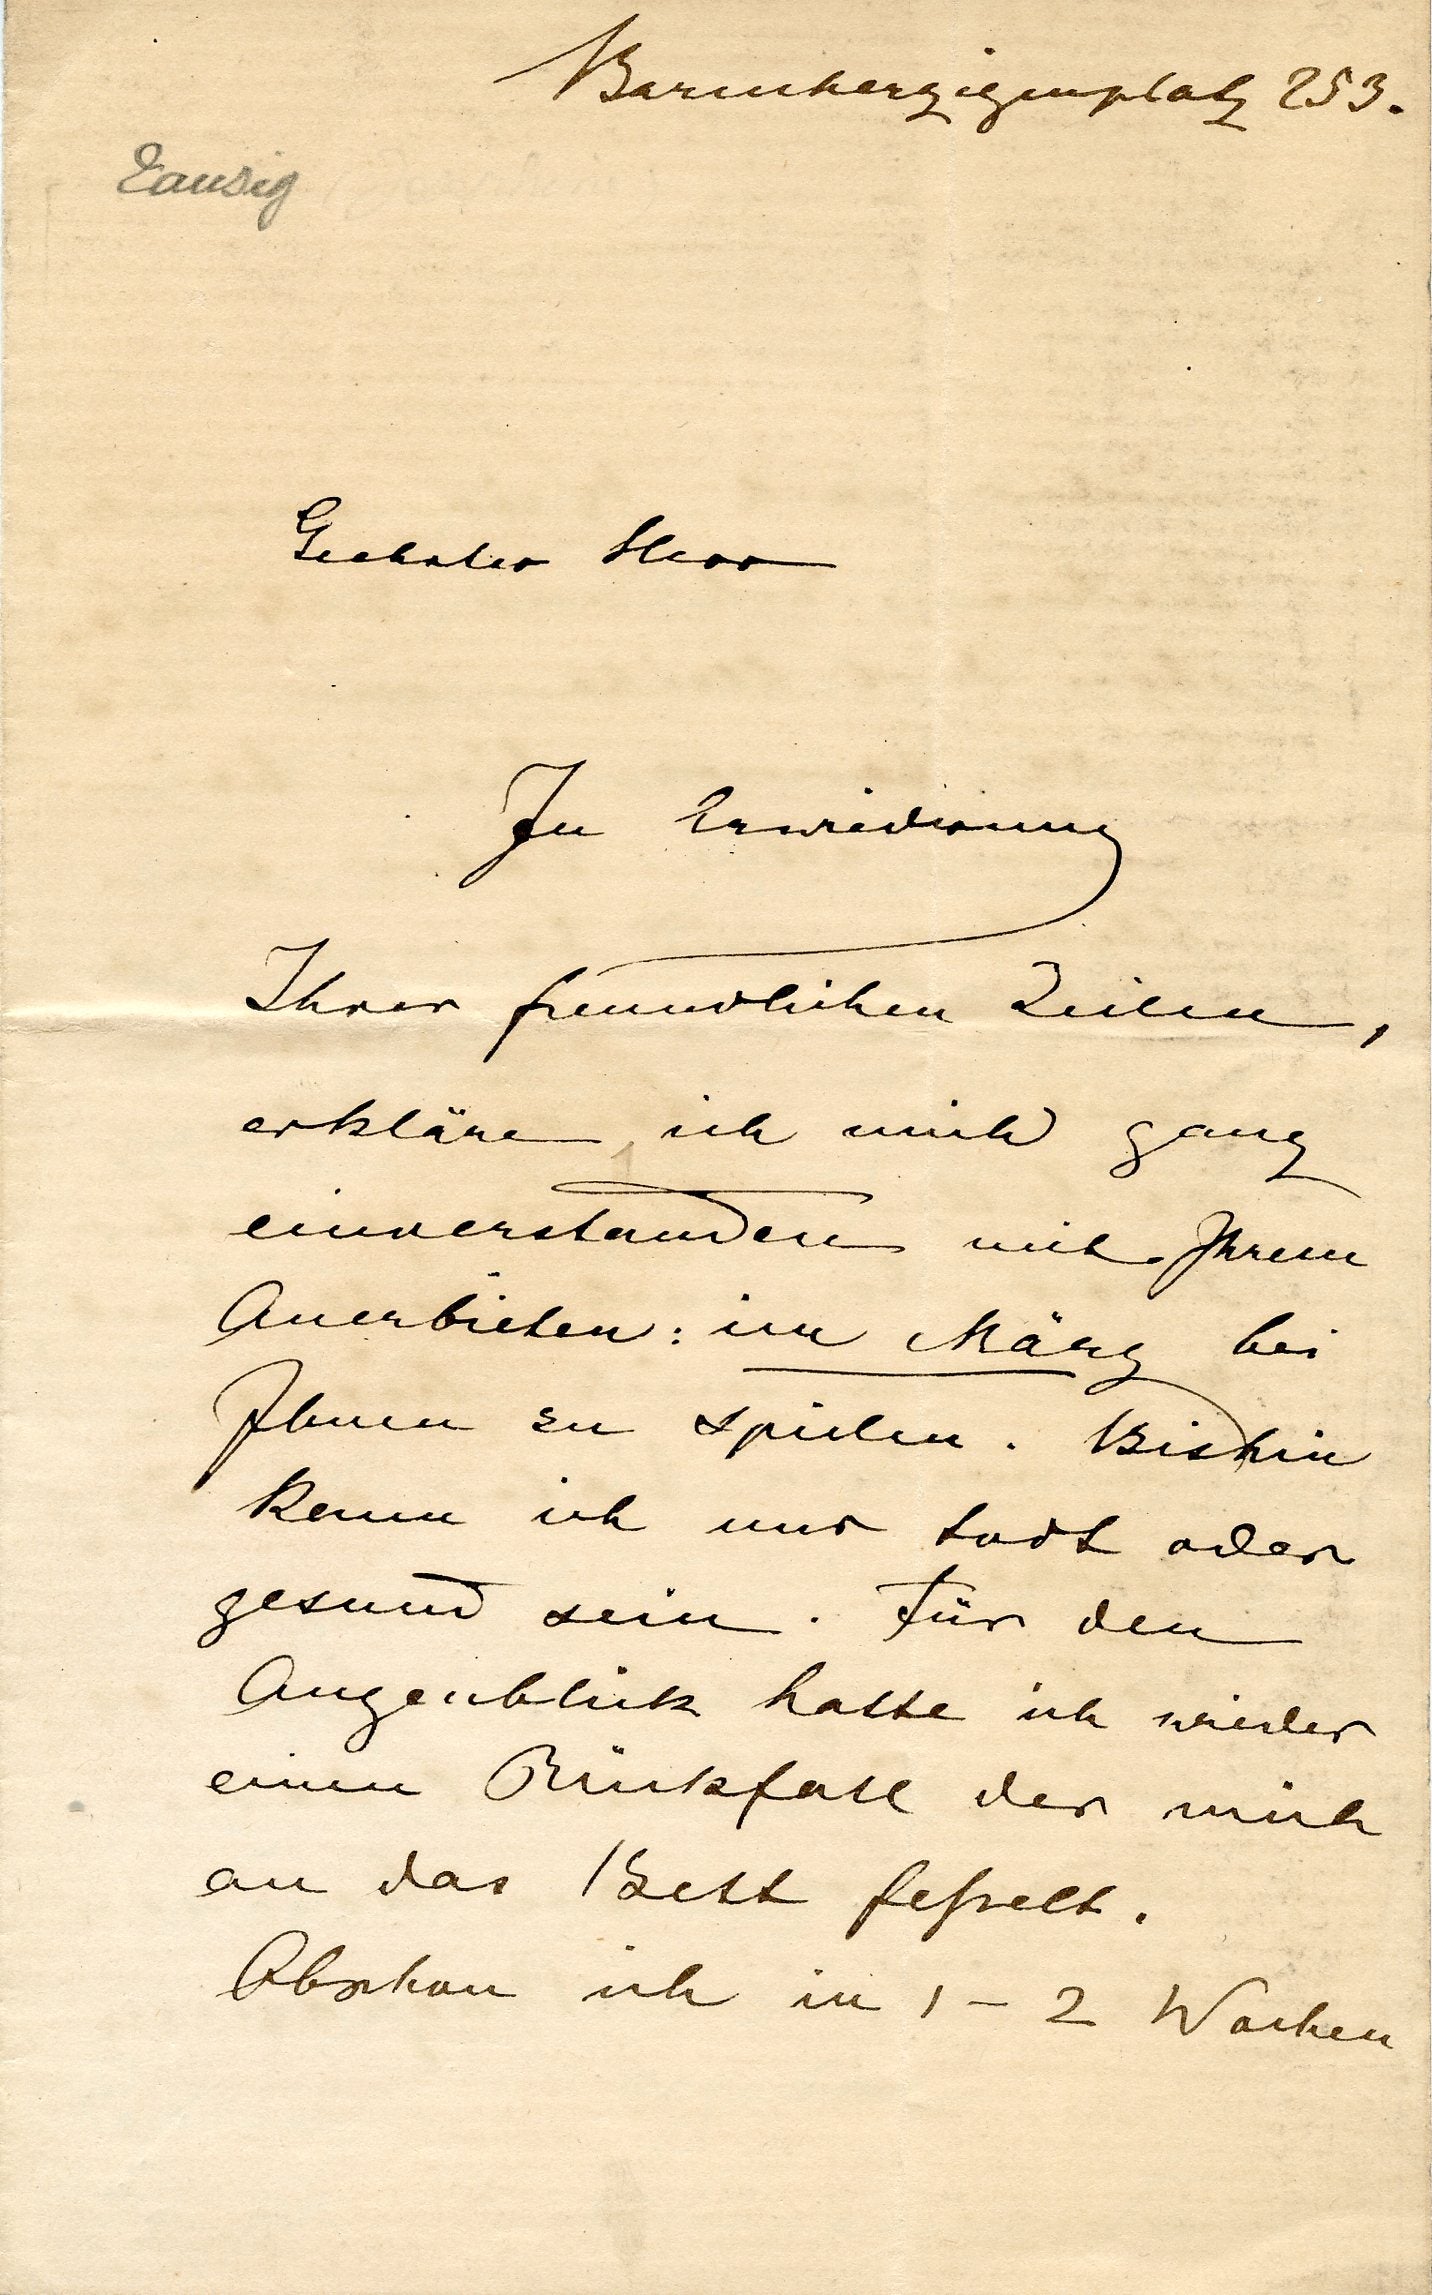 Barmherzigenplatz 253.
Tausig
Geehrter Herr
In Erwiederung
Ihrer freundlichen Zeilen,
erkläre ich mich ganz
einverstanden mit Ihrem
Anerbieten: im März bei
Ihnen zu spielen. Bishin
kann ich nur todt oder
gesund sein. Für den
Augenblick hatte ich wieder
einen Rückfall der mich
an das Bett feßelt.
Obschon ich in 1-2 Wochen